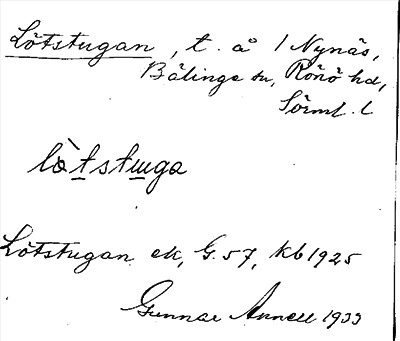 Lötstugan, t. å / Nynäs,
Bälinge sn, Rönö hd,
Sörml. l
lò̀tstuga
Lötstugan ek, G. 57, Kb 1925
Gunnar Annell 1933